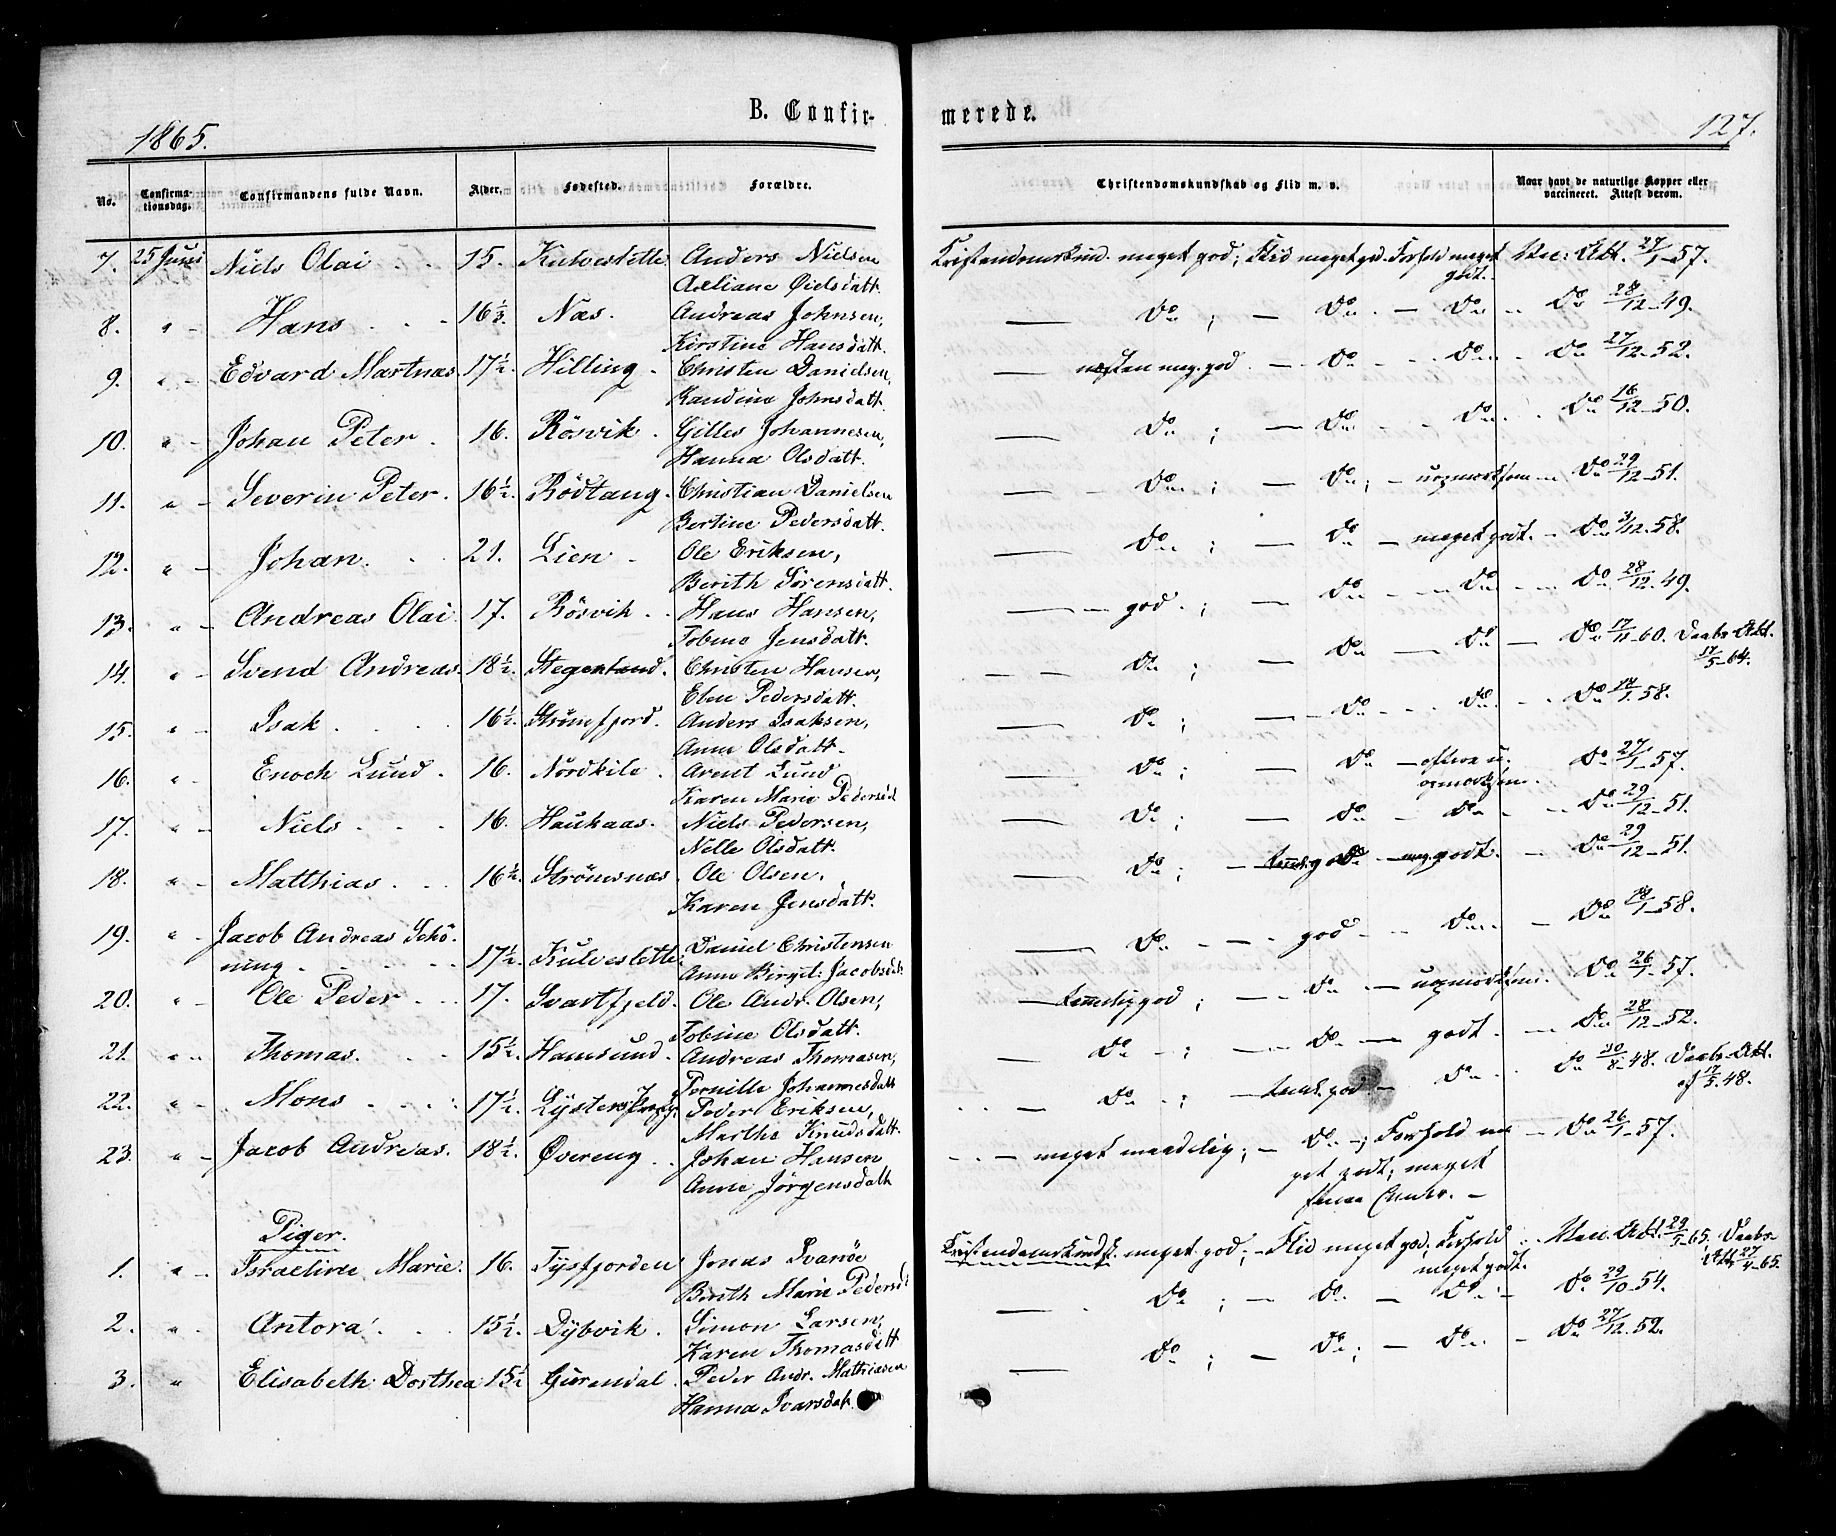 1865.
B. Confir-
merede.
127.
No.
Confirma-
tionsdag.
Confirmandens fulde Navn.
Alder.
Fødested.
Forældre.
Christendomskundskab og Flid m. v.
Naar havt de naturlige Kopper eller
vaccineret. Attest derom.
7. 25 Juni Niels Olai 15. Kulveslette Anders Nielsen meget god; Flid meget gd. Forhold meget Vac. Att. 27/1-57.
godt.
8. " Hans 16 1/3. Næs. Andreas Johnsen, Do ; Do Do Do 28/12-49.
Kirstine Hansdatt.
9. " Edvard Martnus 17 1/2. Hilling Christen Danielsen, næsten meg. god Do Do Do 27/12-52.
Johnsdatt.
10. " Johan Peter 16. Rösvik Gilles Johannesen, Do ; Do Do Do 16/12-50.
Hanna Olsdatt.
11. " Severin Peter. 16 1/2. Rödtang Christian Danielsen Do ; Do ; uopmerksom Do 29/12-51.
Bertine Pedersdatt.
12. " Johan. 21. Lien Ole Eriksen, Do ; Do meget godt. Do 3/12-58.
Berith Sörensdatt.
13. " Andreas Olai 17. Rösvik Hans Hansen, god ; Do Do Do 28/12-49.
Tobine Jensdatt.
14. " Svend Andreas. 18 1/2. Christen Hansen, Do ; Do Do Do 17/11-60. Daabs-Att.
17/5-64.
Elen Pedersdatt.
15. " Isak 16 1/2. Strömfjord. Anders Isaksen, Do ; Do Do Do 14/1-58.
Anne Olsdatt.
16. " Enoch Lund. 16. Nordkile Arent Lund Do ; Do oftere u- Do 27/1-57.
opmerksom.
Karen Marie Pedersd
17. " Niels 16. Haukaas. Niels Pedersen, Do ; Do Do Do 29/12-51.
Nelle Olsdatt.
18. " Matthias 16 1/2. Strömsnæs Ole Olsen, Do ; Do meg. godt. Do 29/12-51.
Karen Jensdatt.
19. " Jacob Andreas Schö-
ning 17 1/2. Kulveslette Daniel Christensen Do god Do Do 14/1-58.
Anne Birgit: Jacobsdt.
20. " Ole Peder 17. Svartfjeld. Ole Andr. Olsen, temelig god ; Do uopmerksom. Do 26/1-57.
Tobine Olsdatt.
21. " Thomas. 15 1/2. Hamsund Andreas Thomasen, Do ; Do godt Do 28/12-52.
Pernille Johannesdatt
22. " Mons 17 1/2. Peder Eriksen, Do ; teml. god Do Do 30/8-48. Daabs-Att.
17/5.48.
Marthe Knudsdatt.
23. " Jacob Andreas. 18 1/2. Övereng Johan Hansen meget maadelig; Do ; Forhold me- Do 26/1-57.
Anne Jörgensdatt get godt; meget
Piger.
1. " Israeline Marie. 16. Tysfjorden Jonas Ivarsöe Kristendomskundsk. meget god; Flid meget god, Forhold Vac. Att. 29/5-65. Daabs-
Att. 27/4-65.
Berith Marie Pedersd meget godt.
2. " Antora 15 1/2. Dybvik. Simon Larsen, Do ; Do Do Do 29/10-54.
Karen Thomasdtt
3. " Elisabeth Dorthea 15 1/2 Gurendal Peder Andr. Mathiasen Do ; Do ; Do Do 27/12.52.
Hanna Ivarsdat.